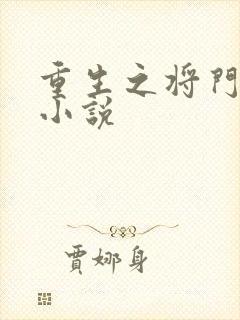 重生之将門
小說
賈娜身